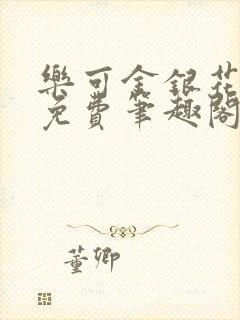 樂可金銀花
免費筆趣閣
董卿